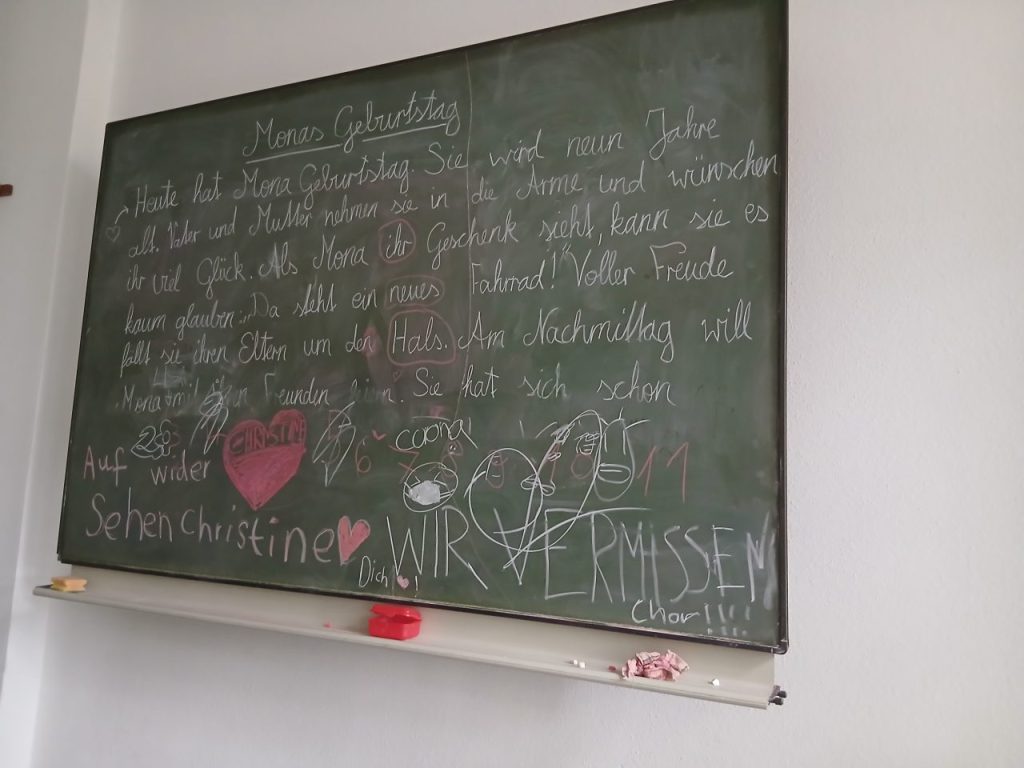 Monas Geburtstag
Heute hat Mona Geburtstag. Sie wird neun Jahre
alt. Vater und Mutter nehmen sie in die Arme und wünschen
ihr viel Glück. Als Mona ihr Geschenk sieht, kann sie es
kaum glauben: „Da steht ein neues Fahrrad!“ Voller Freude
fällt sie ihren Eltern um den Hals. Am Nachmittag will
Mona mit Freunden feiern. Sie hat sich schon
CHRISTINE
6
11
Auf wider
Sehen Christine
Dich!
WIR VERMISSEN
Chor!!!!